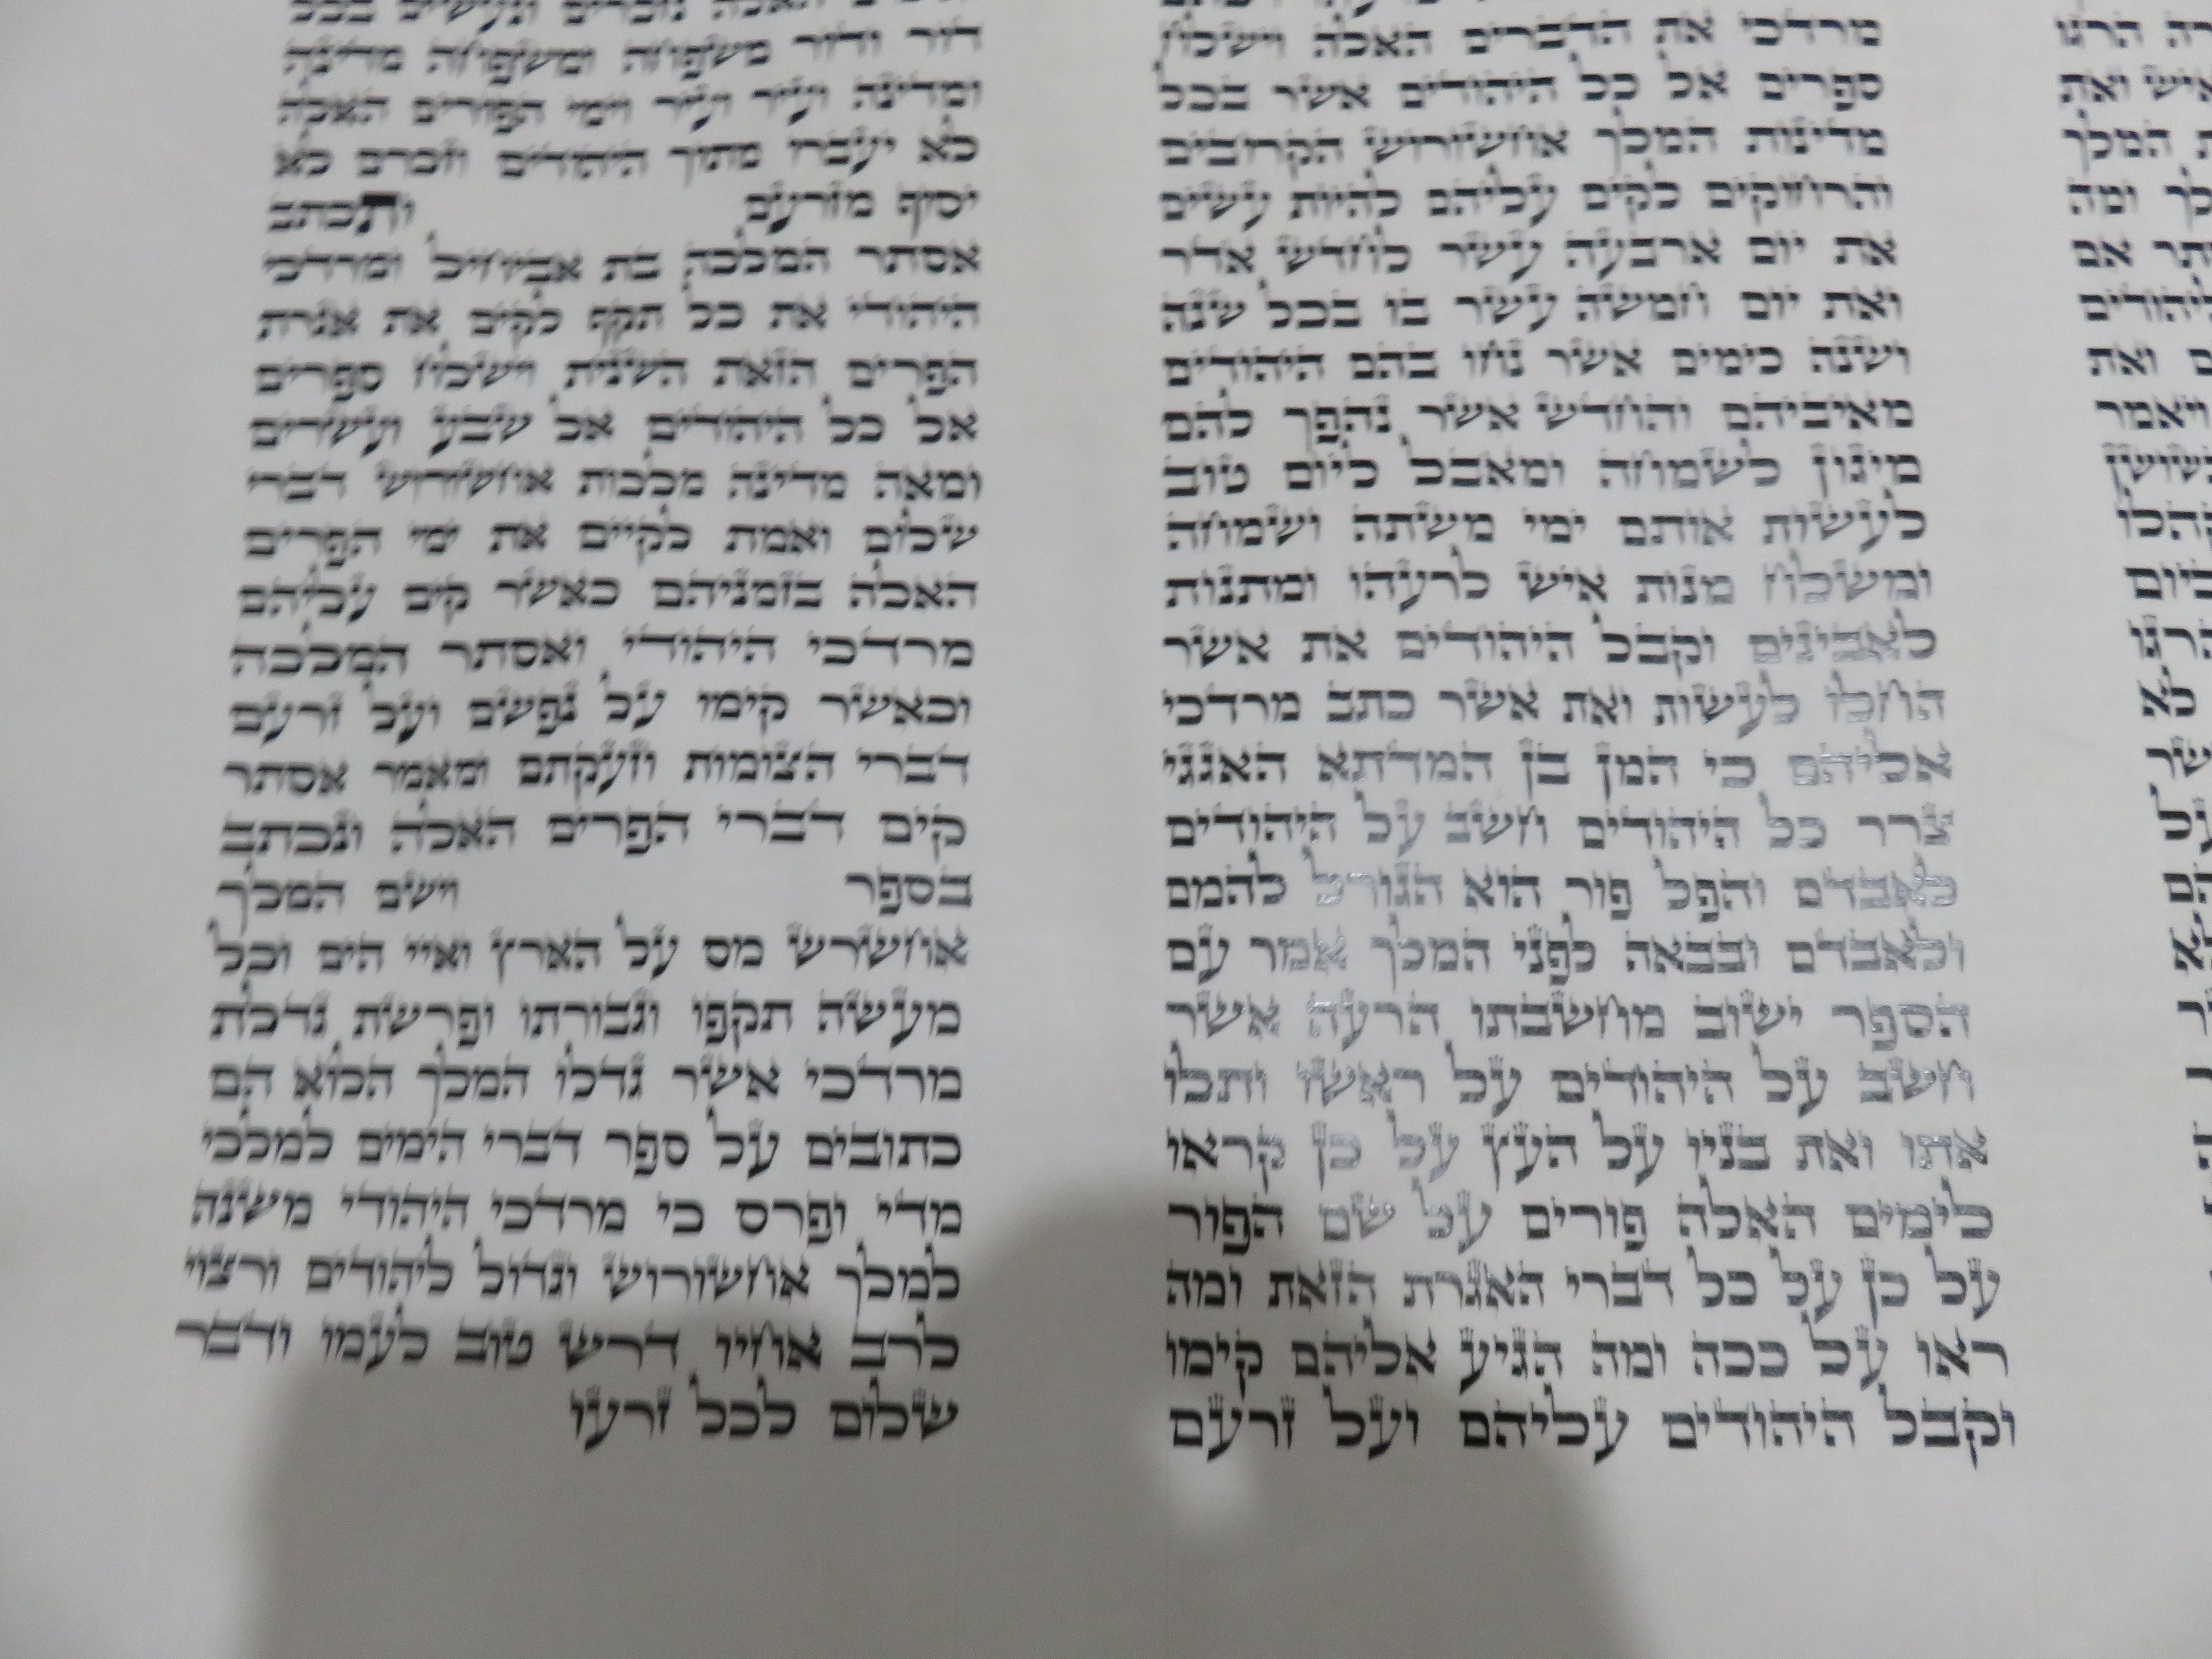 מרדכי את הדברים האלה וישלח
ספרים אל כל היהודים אשר בכל
מדינות המלך אחשורוש הקרובים
והרחוקים לקים עליהם להיות עשים
את יום ארבעה עשר לחדש אדר
ואת יום חמשה עשר בו בכל שנה
ושנה כימים אשר נחו בהם היהודים
מאיביהם והחדש אשר נהפך להם
מיגון לשמחה ומאבל ליום טוב
לעשות אותם ימי משתה ושמחה
ומשלח מנות איש לרעהו ומתנות
לאבינים וקבל היהודים את אשר
החלו לעשות ואת אשר כתב מרדכי
אליהם כי המן בן המדתא האגגי
צרר כל היהודים חשב על היהודים
לאבדם והפל פור הוא הגורל להמם
ולאבדם ובבאה לפני המלך אמר עם
הספר ישוב מחשבתו הרעה אשר
חשב על היהודים על ראשו ותלו
אתו ואת בניו על העץ על כן קראו
לימים האלה פורים על שם הפור
על כן על כל דברי האגרת הזאת ומה
ראו על ככה ומה הגיע אליהם קימו
וקבל היהודים עליהם ועל זרעם
דור ודור משפחה ומשפחה מדינה
ומדינה ועיר ועיר וימי הפורים האלה
לא יעברו מתוך היהודים וזכרם לא
יסוף מזרעם ותכתב
אסתר המלכה בת אביחיל ומרדכי
היהודי את כל תקף לקים את אגרת
הפרים הזאת השנית וישלח ספרים
אל כל היהודים אל שבע ועשרים
ומאה מדינה מלכות אחשורוש דברי
שלום ואמת לקיים את ימי הפרים
האלה בזמניהם כאשר קים עליהם
מרדכי היהודי ואסתר המלכה
וכאשר קימו על נפשם ועל זרעם
דברי הצומות וזעקתם ומאמר אסתר
קים דברי הפרים האלה ונכתב
בספר וישם המלך
אחשרש מס על הארץ ואיי הים וכל
מעשה תקפו וגבורתו ופרשת גדלת
מרדכי אשר גדלו המלך הלוא הם
כתובים על ספר דברי הימים למלכי
מדי ופרס כי מרדכי היהודי משנה
למלך אחשורוש וגדול ליהודים ורצוי
לרב אחיו דרש טוב לעמו ודבר
שלום לכל זרעו